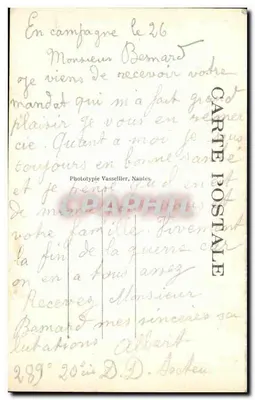 En campagne le 26
Monsieur Bernard
je viens de recevoir votre
mandat qui m'a fait grand
plaisir Je vous en remer
cie. Quant a moi je suis
toujours en bonne santé
et je pense qu'il en est
de même
votre famille. Vivement
la fin de la guerre car
on en a tous assez
Recevez Monsieur
Barnard mes sincères sa
lutations Albert
289e 20e Cie D.D.
Phototypie Vassellier, Nantes
CARTE POSTALE
CPAPHIL